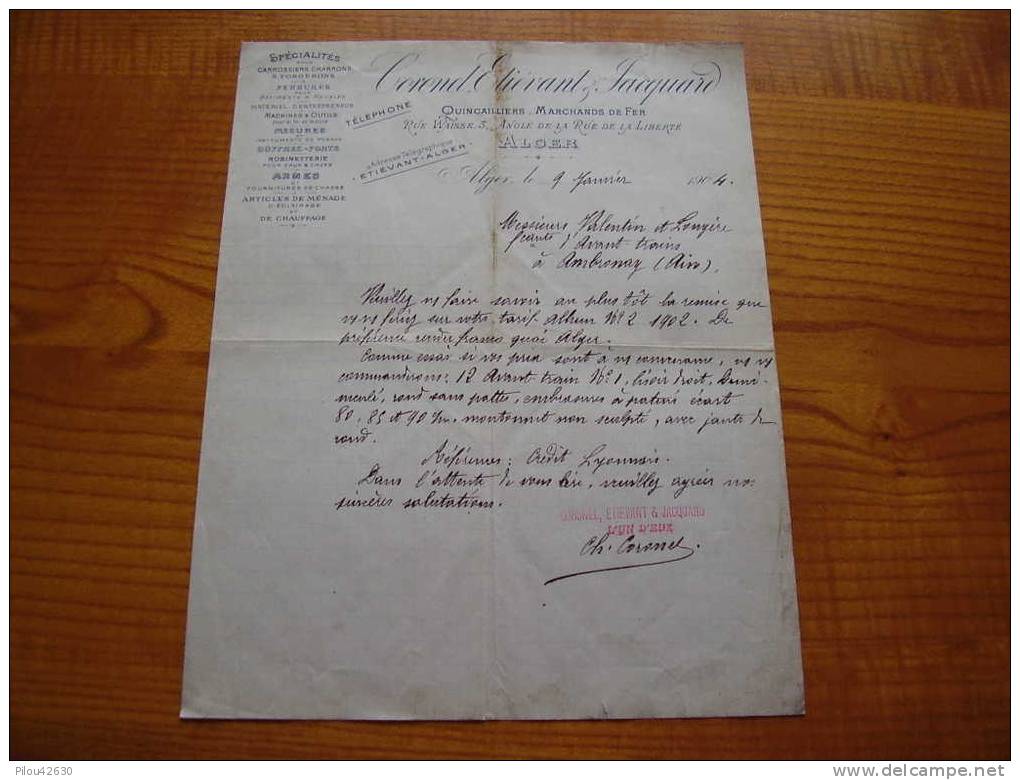 SPÉCIALITÉS
POUR
CARROSSIERS, CHARRONS
& FORGERONS
FERRURES
POUR
BÂTIMENTS & MEUBLES
MATÉRIEL D'ENTREPRENEUR
MACHINES & OUTILS
MESURES
ET
INSTRUMENTS DE PESAGE
COFFRES-FORTS
ROBINETTERIE
POUR EAUX & GAZ
ARMES
ET
FOURNITURES DE CHASSE
ARTICLES DE MÉNAGE
D'ÉCLAIRAGE
ET
DE CHAUFFAGE
Coronel, Etiévant & Jacquard
QUINCAILLIERS, MARCHANDS DE FER
RUE WAÏSSE, 3, ANGLE DE LA RUE DE LA LIBERTÉ
ALGER
TÉLÉPHONE
Adresse Télégraphique
ETIÉVANT-ALGER
Alger, le 9 Janvier 1904.
Messieurs Valentin et Longère
d'Avant trains
à Ambronay (Ain).
Veuillez ns faire savoir au plus tôt la remise que
vs ns ferez sur votre tarif Album No 2 1902. De
préférence rendu franco quai Alger.
Comme essai si vos prix sont à ns convenance, ns vs
commanderons: 12 Avant train No 1, lisoir droit, Demi-
rond sans pattes, embrasures à patins écart
80, 85 et 90 non sculpté, avec jante de
rond.
Références: Crédit Lyonnais.
Dans l'attente de vous lire, veuillez agréer nos
sincères salutations.
CORONEL, ETIEVANT & JACQUARD
L'UN D'EUX
Ch. Coronel.
Pilou42630
www.delcampe.net